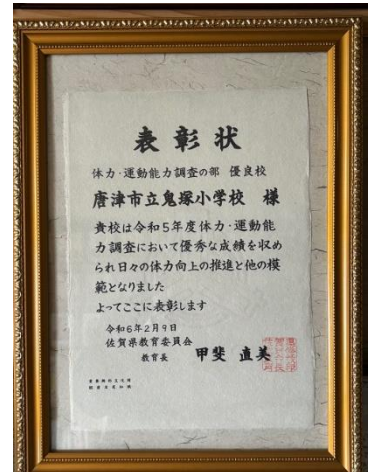 表彰状
体力・運動能力調査の部 優良校
唐津市立鬼塚小学校 様
貴校は令和5年度体力・運動能
力調査において優秀な成績を収め
られ日々の体力向上の推進と他の模
範となりました
よってここに表彰します
令和6年2月9日
佐賀県教育委員会
教育長 甲斐 直美